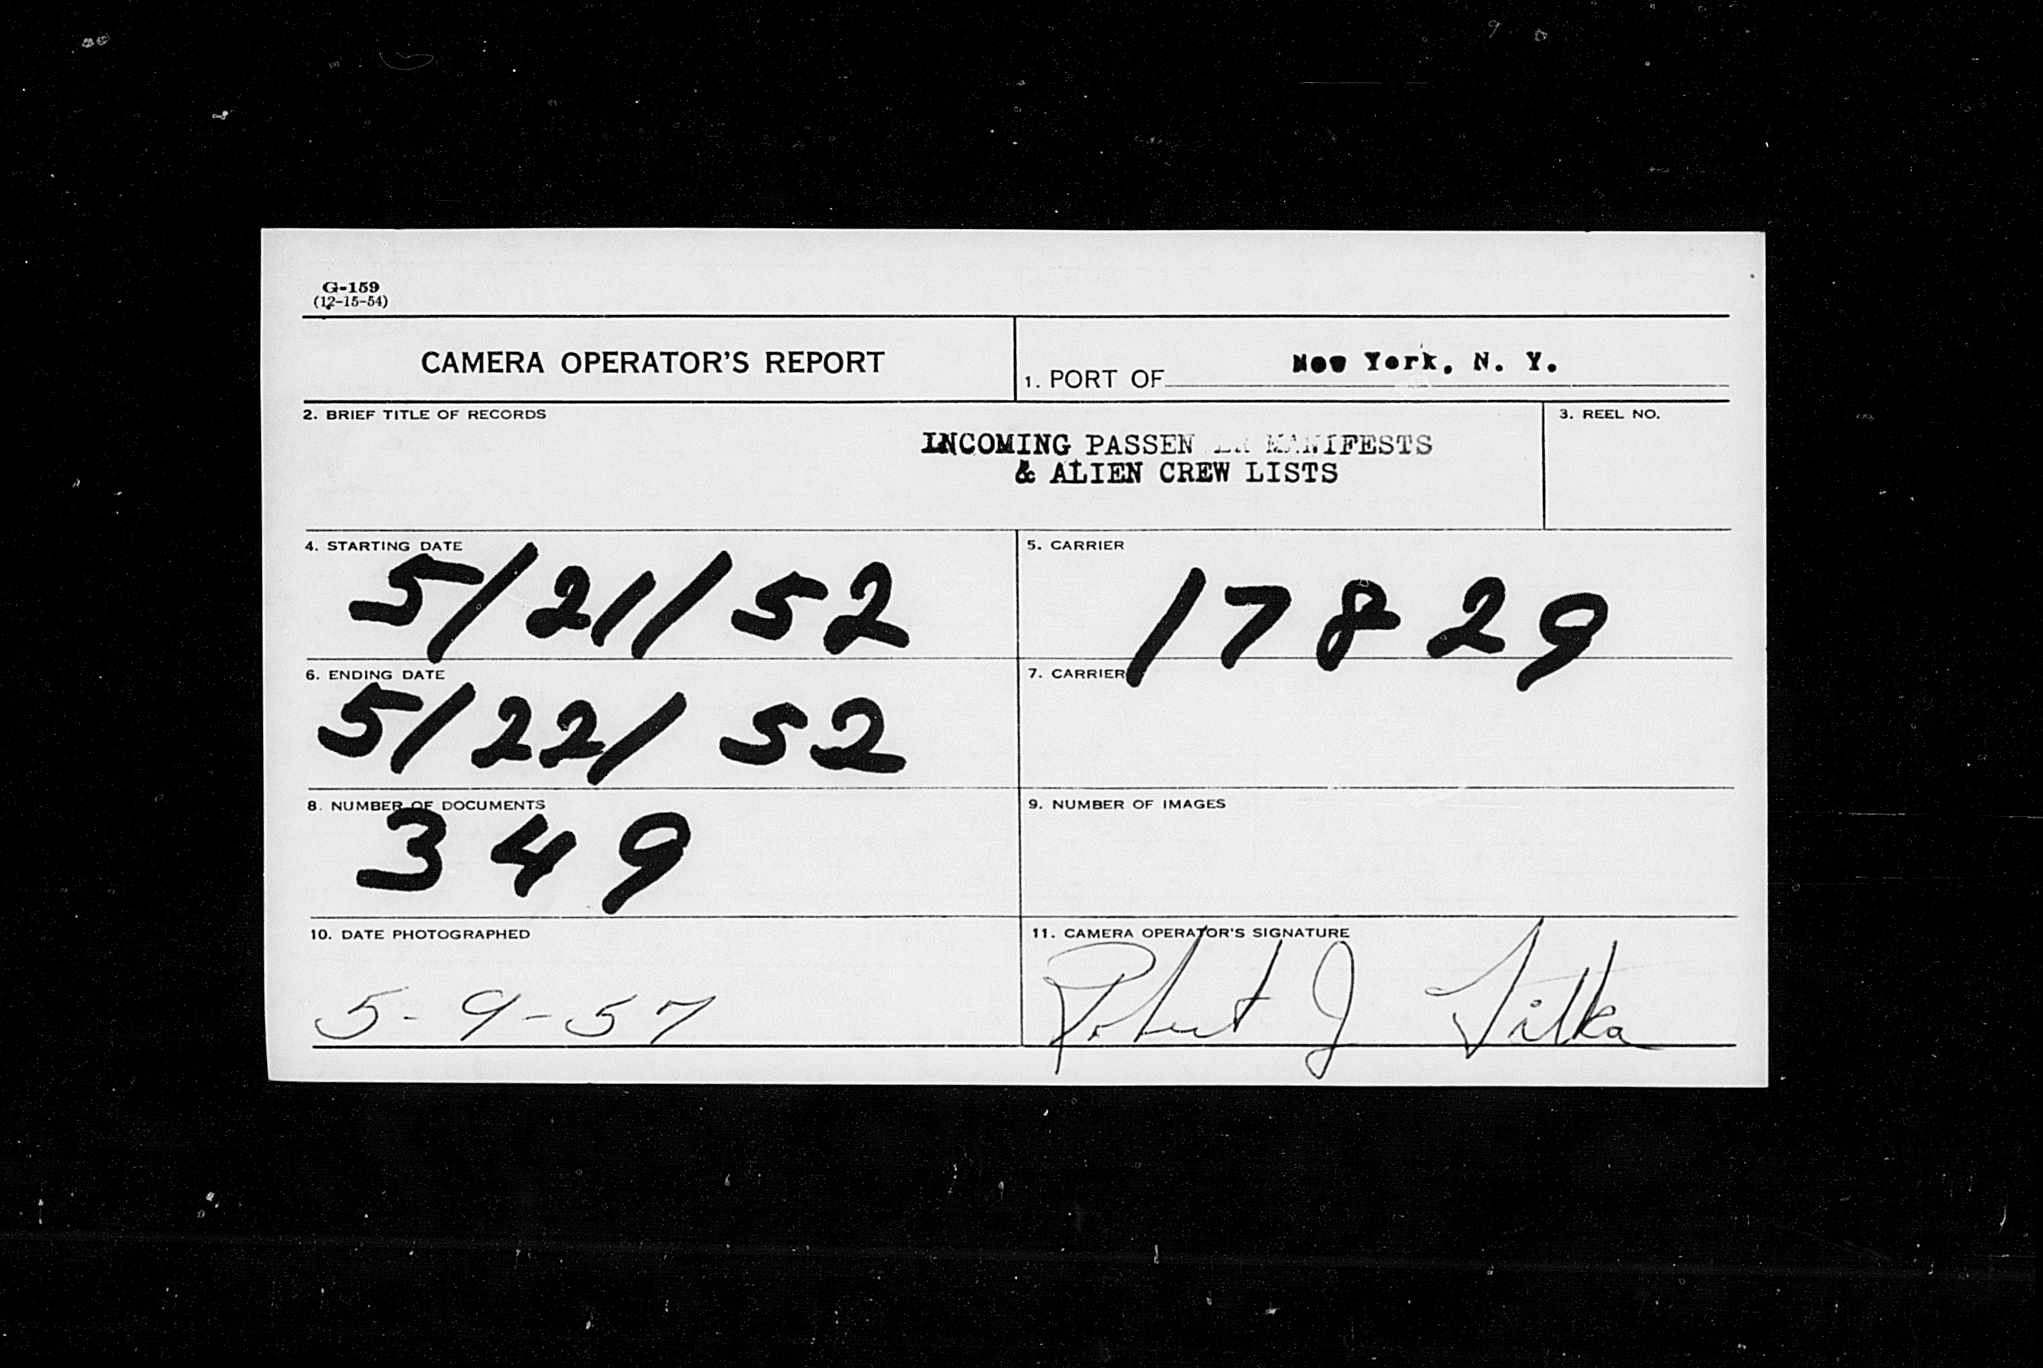 G-159
(12-15-54)
CAMERA OPERATOR'S REPORT
1. PORT OF New York, N. Y.
2. BRIEF TITLE OF RECORDS
3. REEL NO.
INCOMING PASSEN ER MANIFESTS
& ALIEN CREW LISTS
4. STARTING DATE
5/21/52
5. CARRIER
17829
6. ENDING DATE
5/22/52
7. CARRIER
8. NUMBER OF DOCUMENTS
349
9. NUMBER OF IMAGES
10. DATE PHOTOGRAPHED
5-9-57
11. CAMERA OPERATOR'S SIGNATURE
Robert J